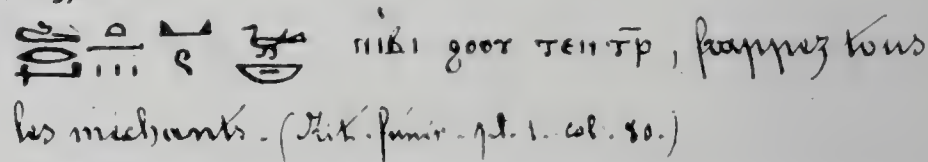 ⲛⲓⲃⲓ ϩⲟⲟⲩ ⲧⲉⲛ ⲧⲣ̄, frappez tous
les méchants. (Rit. funér. pl. 1. col. 80.)